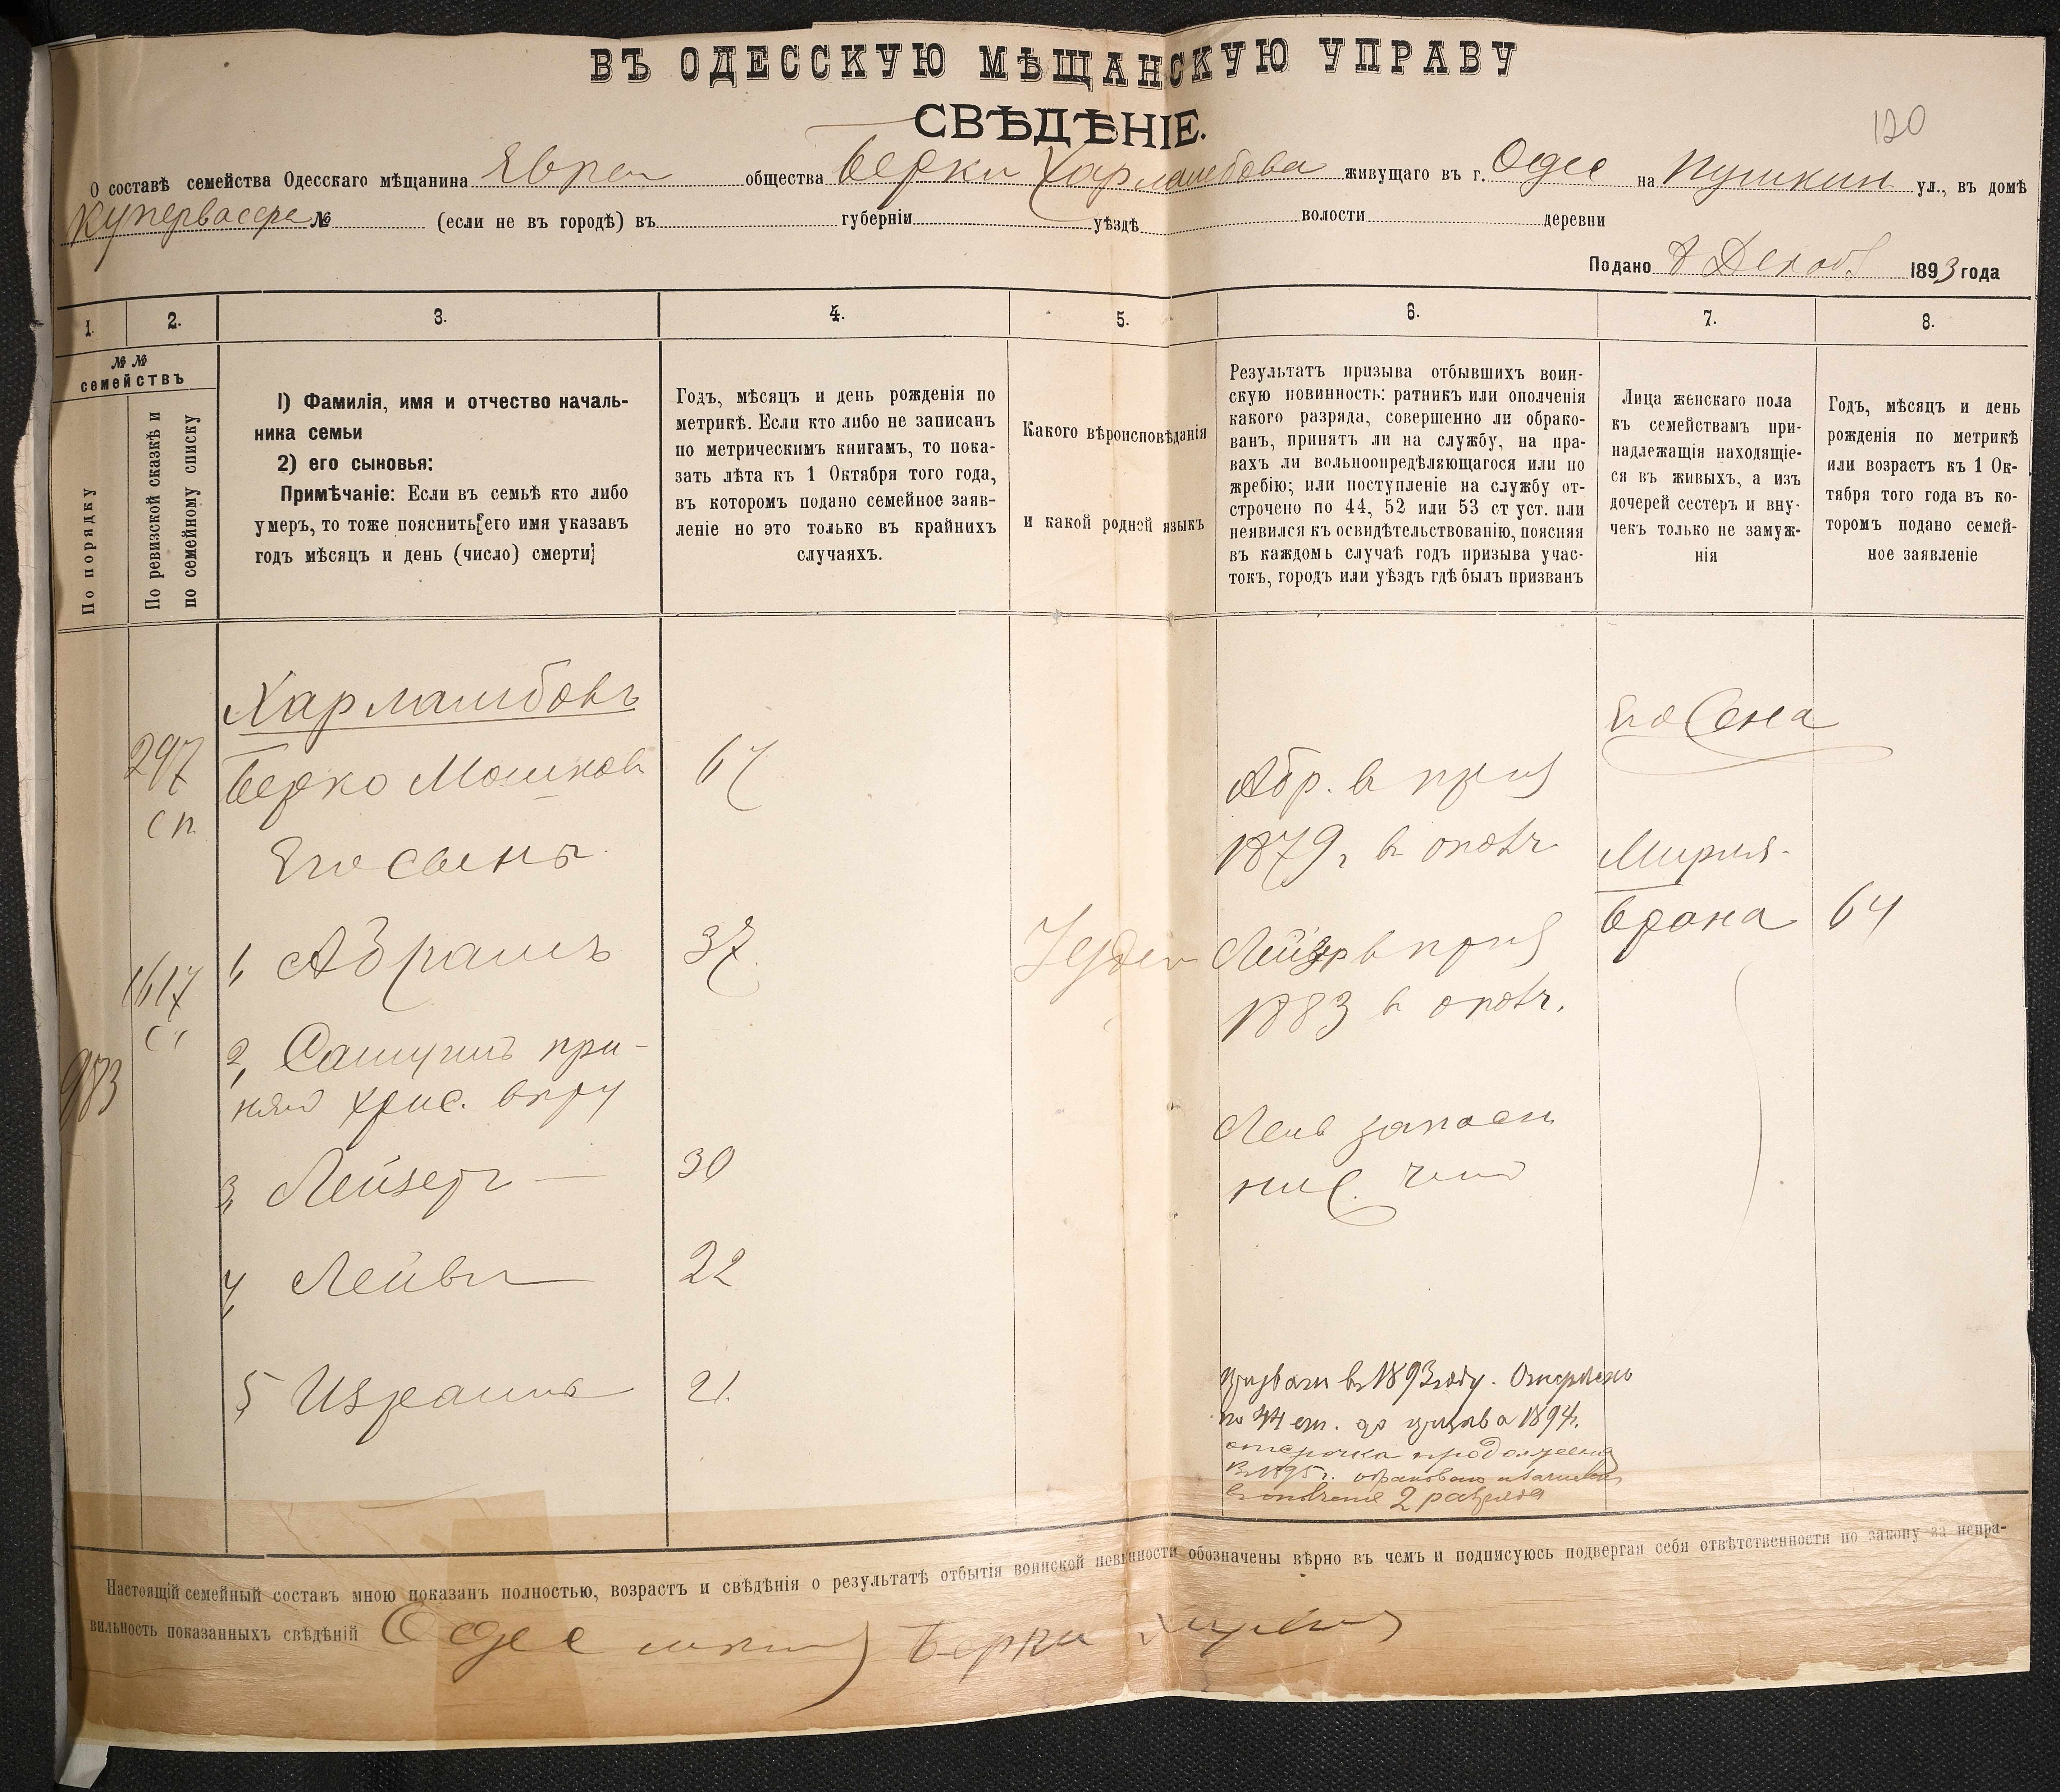 ВЪ ОДЕССКУЮ МѢЩАНСКУЮ УПРАВУ
СВѢДѢНІЕ.
120
О составѣ семейства Одесскаго мѣщанина Еврей общества Берки Харламбова живущаго въ г. Одес на Пушкин ул., въ домѣ
Купервасера № (если не въ городѣ) въ губерніи уѣздѣ волости деревни
Подано 8 Декаб 1893 года
1. 2. 3. 4. 5. 6. 7. 8.
№№
семействъ
По порядку
По ревизской сказкѣ и
по семейному списку
1) Фамилія, имя и отчество началь-
ника семьи
2) его сыновья:
Примѣчаніе: Если въ семьѣ кто либо
умеръ, то тоже пояснить[его имя указавъ
годъ мѣсяцъ и день (число) смерти]
Годъ, мѣсяцъ и день рожденія по
метрикѣ. Если кто либо не записанъ
по метрическимъ книгамъ, то пока-
зать лѣта къ 1 Октября того года,
въ которомъ подано семейное заяв-
леніе но это только въ крайнихъ
случаяхъ.
Какого вѣроисповѣданія
и какой родной языкъ
Результатъ призыва отбывшихъ воин-
скую повинность: ратникъ или ополченія
какого разряда, совершенно ли обрако-
ванъ, принятъ ли на службу, на пра-
вахъ ли вольноопредѣляющагося или по
жребію; или поступленіе на службу от-
строчено по 44, 52 или 53 ст уст. или
неявился къ освидѣтельствованію, поясняя
въ каждомъ случаѣ годъ призыва учас-
токъ, городъ или уѣздъ гдѣ былъ призванъ
Лица женскаго пола
къ семействамъ при-
надлежащія находящіе-
ся въ живыхъ, а изъ
дочерей сестеръ и вну-
чекъ только не замуж-
нія
Годъ, мѣсяцъ и день
рожденія по метрикѣ
или возрастъ къ 1 Ок-
тября того года въ ко-
торомъ подано семей-
ное заявленіе
983
297
сп
1617
Харламбовъ
Берко Мошков 67
Его сынъ
1, Абрамъ 37
2, Самуилъ при-
нял хрис. вѣру
3, Лейзеръ 30
4, Лейвъ 22
5 Израиль 21.
Іудей
Абр. в приз
1879 г в ополч.
Лейзер в приз
1883 в ополч.
Лейв запасн
ниж. чин
Призван въ 1893 году. Отсрочен
по 44 ст. до призыва 1894 г.
отсрочка продолжена
Въ 1895 г. обракован и зачислен
в ополчение 2 разряда
Его Жена
Мирия-
Брана 64
Настоящій семейный составъ мною показанъ полностью, возрастъ и свѣдѣнія о результатѣ отбытія воинской повинности обозначены вѣрно въ чемъ и подписуюсь подвергая себя отвѣтственности по закону за непра-
вильность показанныхъ свѣдѣній Одес мѣщ Берки